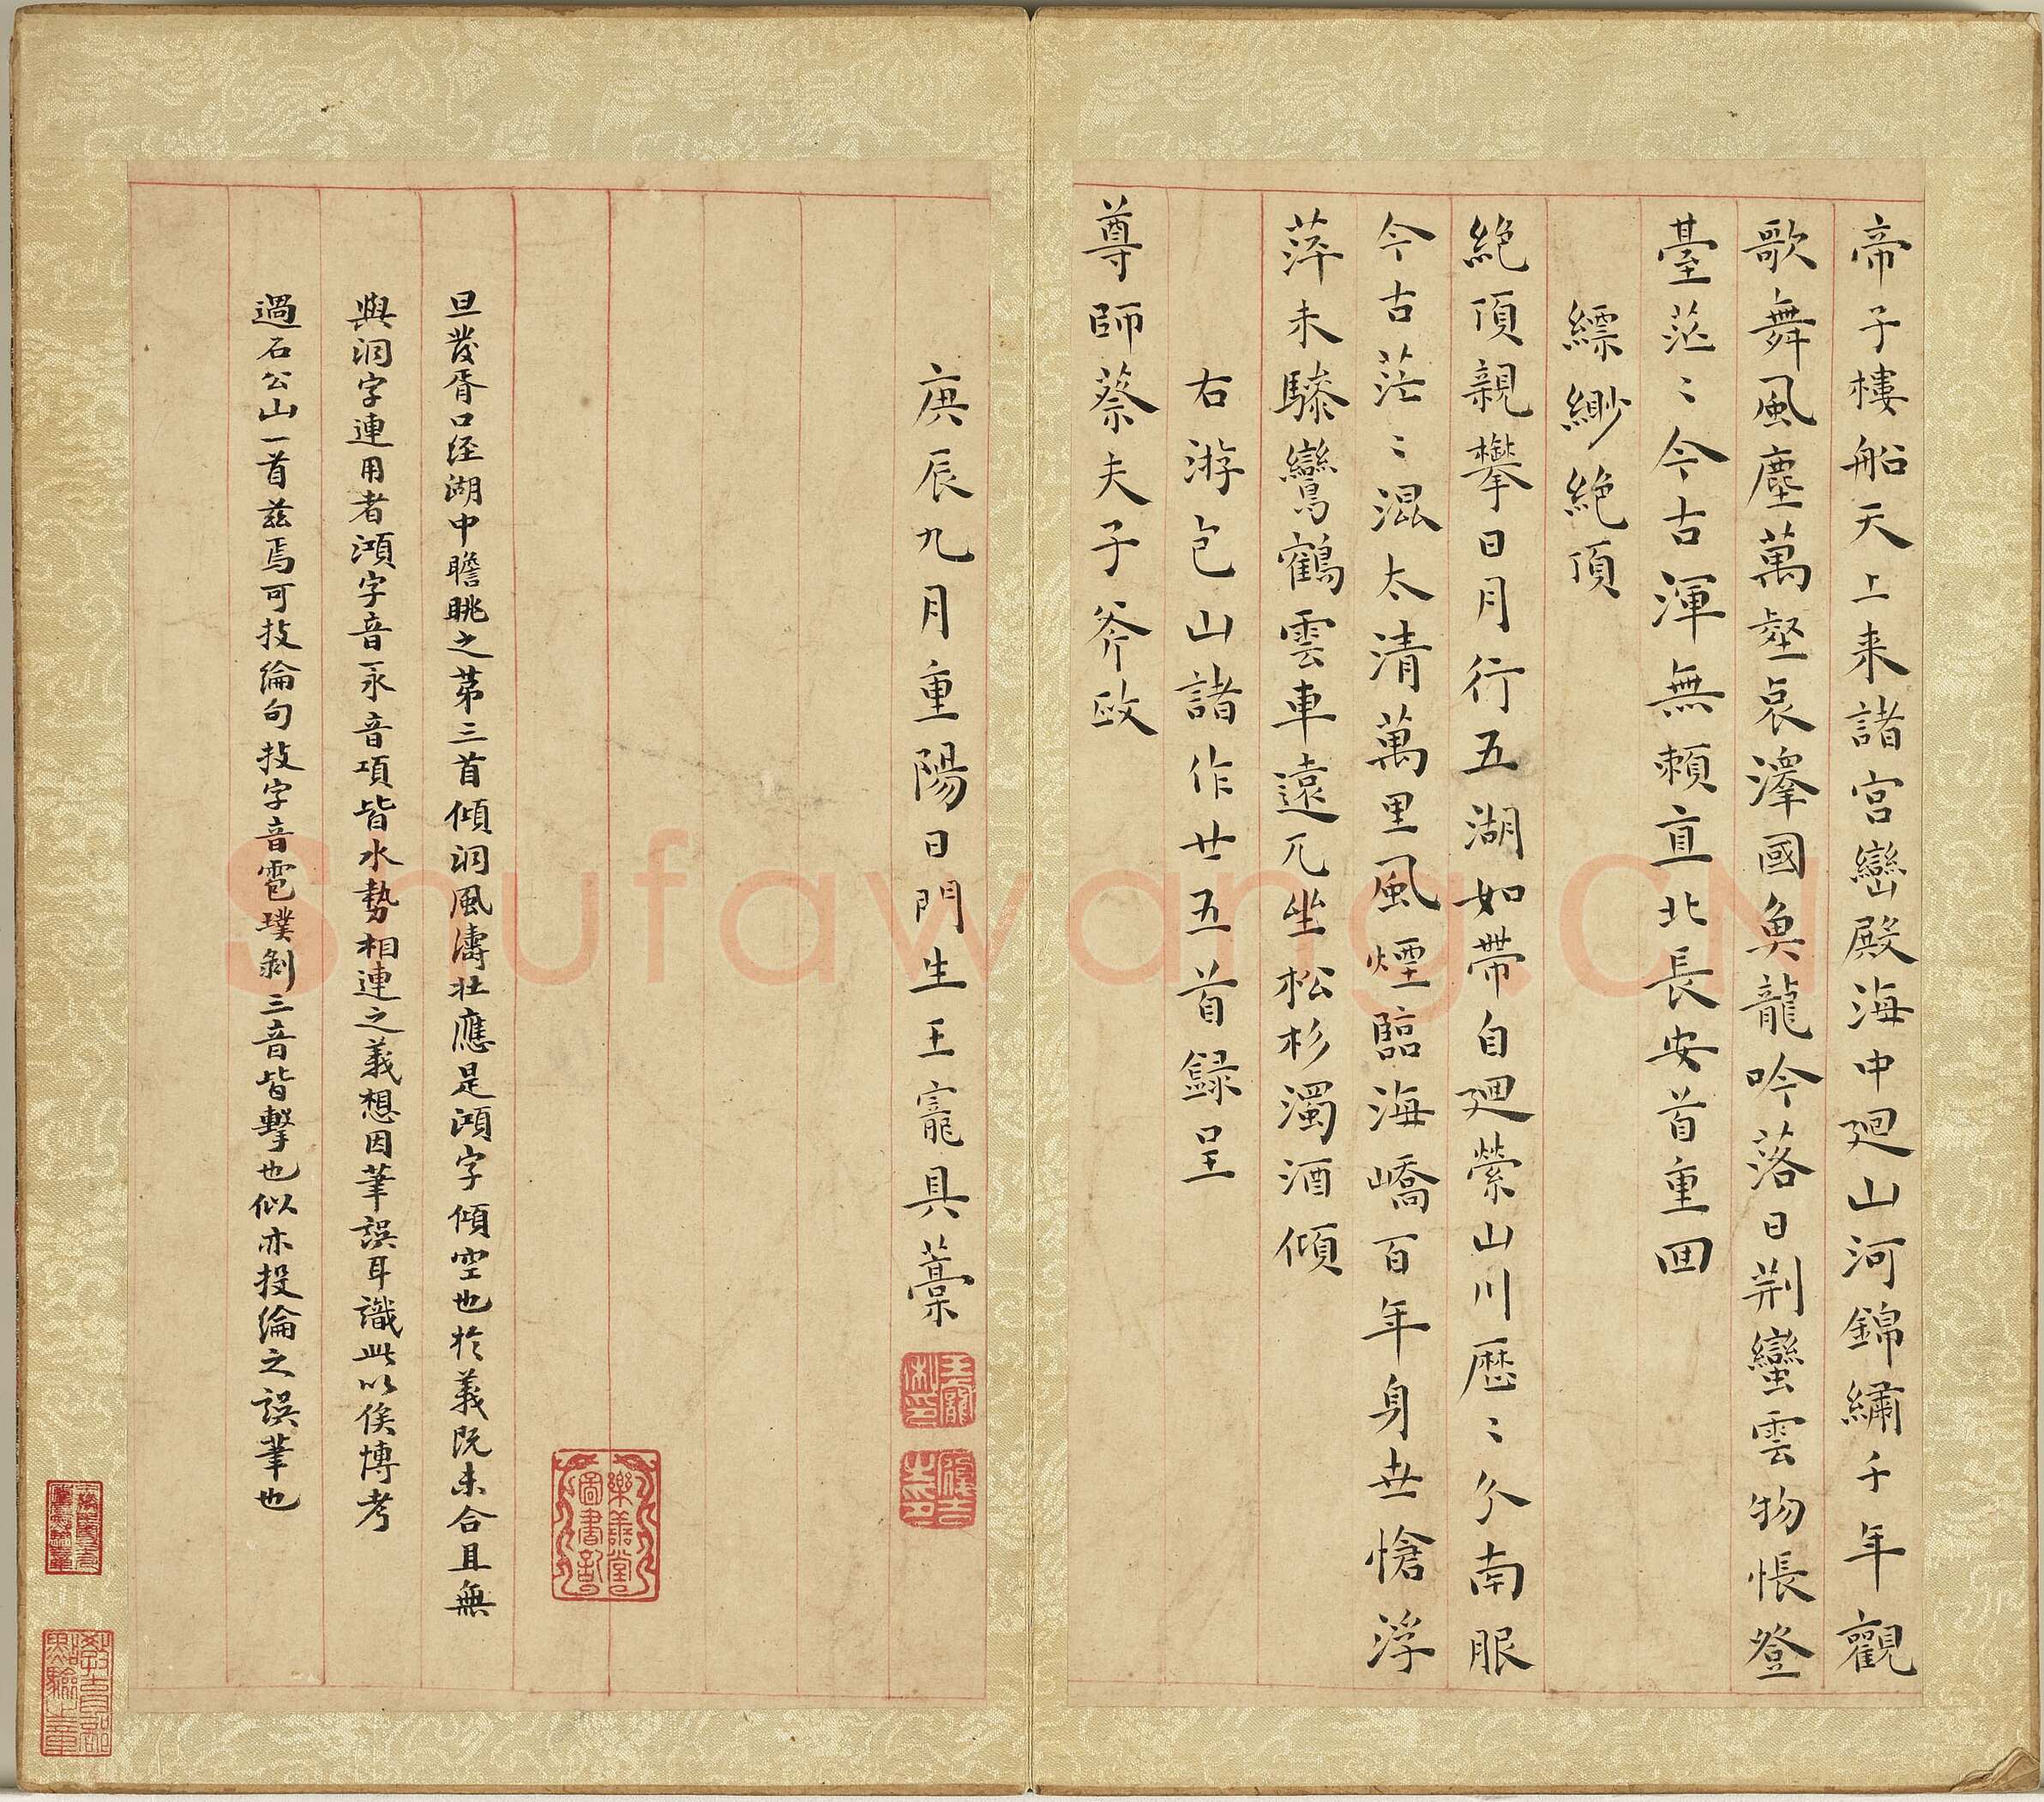 帝子樓船天上来諸宮巒殿海中廻山河錦繡千年觀
歌舞風塵萬壑哀澤國魚龍吟落日荆蠻雲物悵登
臺茫〻今古渾無賴直北長安首重回
縹緲絶頂
絶頂親攀日月行五湖如帶自廻縈山川歷〻分南服
今古茫〻混太清萬里風煙臨海嶠百年身世愴浮
萍未驂鸞鶴雲車遠兀坐松杉濁酒傾
右游包山諸作廿五首録呈
尊師蔡夫子斧政
庚辰九月重陽日門生王寵具藁
王寵
樂善堂
圖書記
旦發胥口経湖中瞻眺之苐三首傾洞風濤壯應是澒字傾空也扵義既未合且無
與洞字連用者澒字音永音項皆水勢相連之義想因筆誤耳識此以俟博考
過石公山一首兹焉可技綸句技字音雹璞剝三音皆擊也似亦投綸之誤筆也
Shufawang.CN